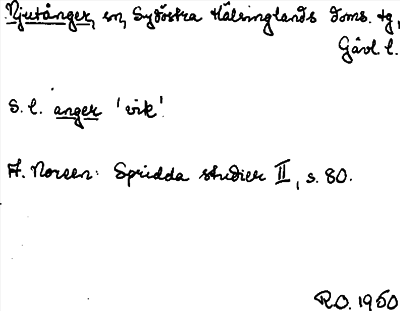 Njutånger, sn, Sydöstra Hälsinglands doms. tg,
Gävl. l.
S. l. anger 'vik'.
A. Noreen: Spridda studier II, s. 80.
R.O. 1950